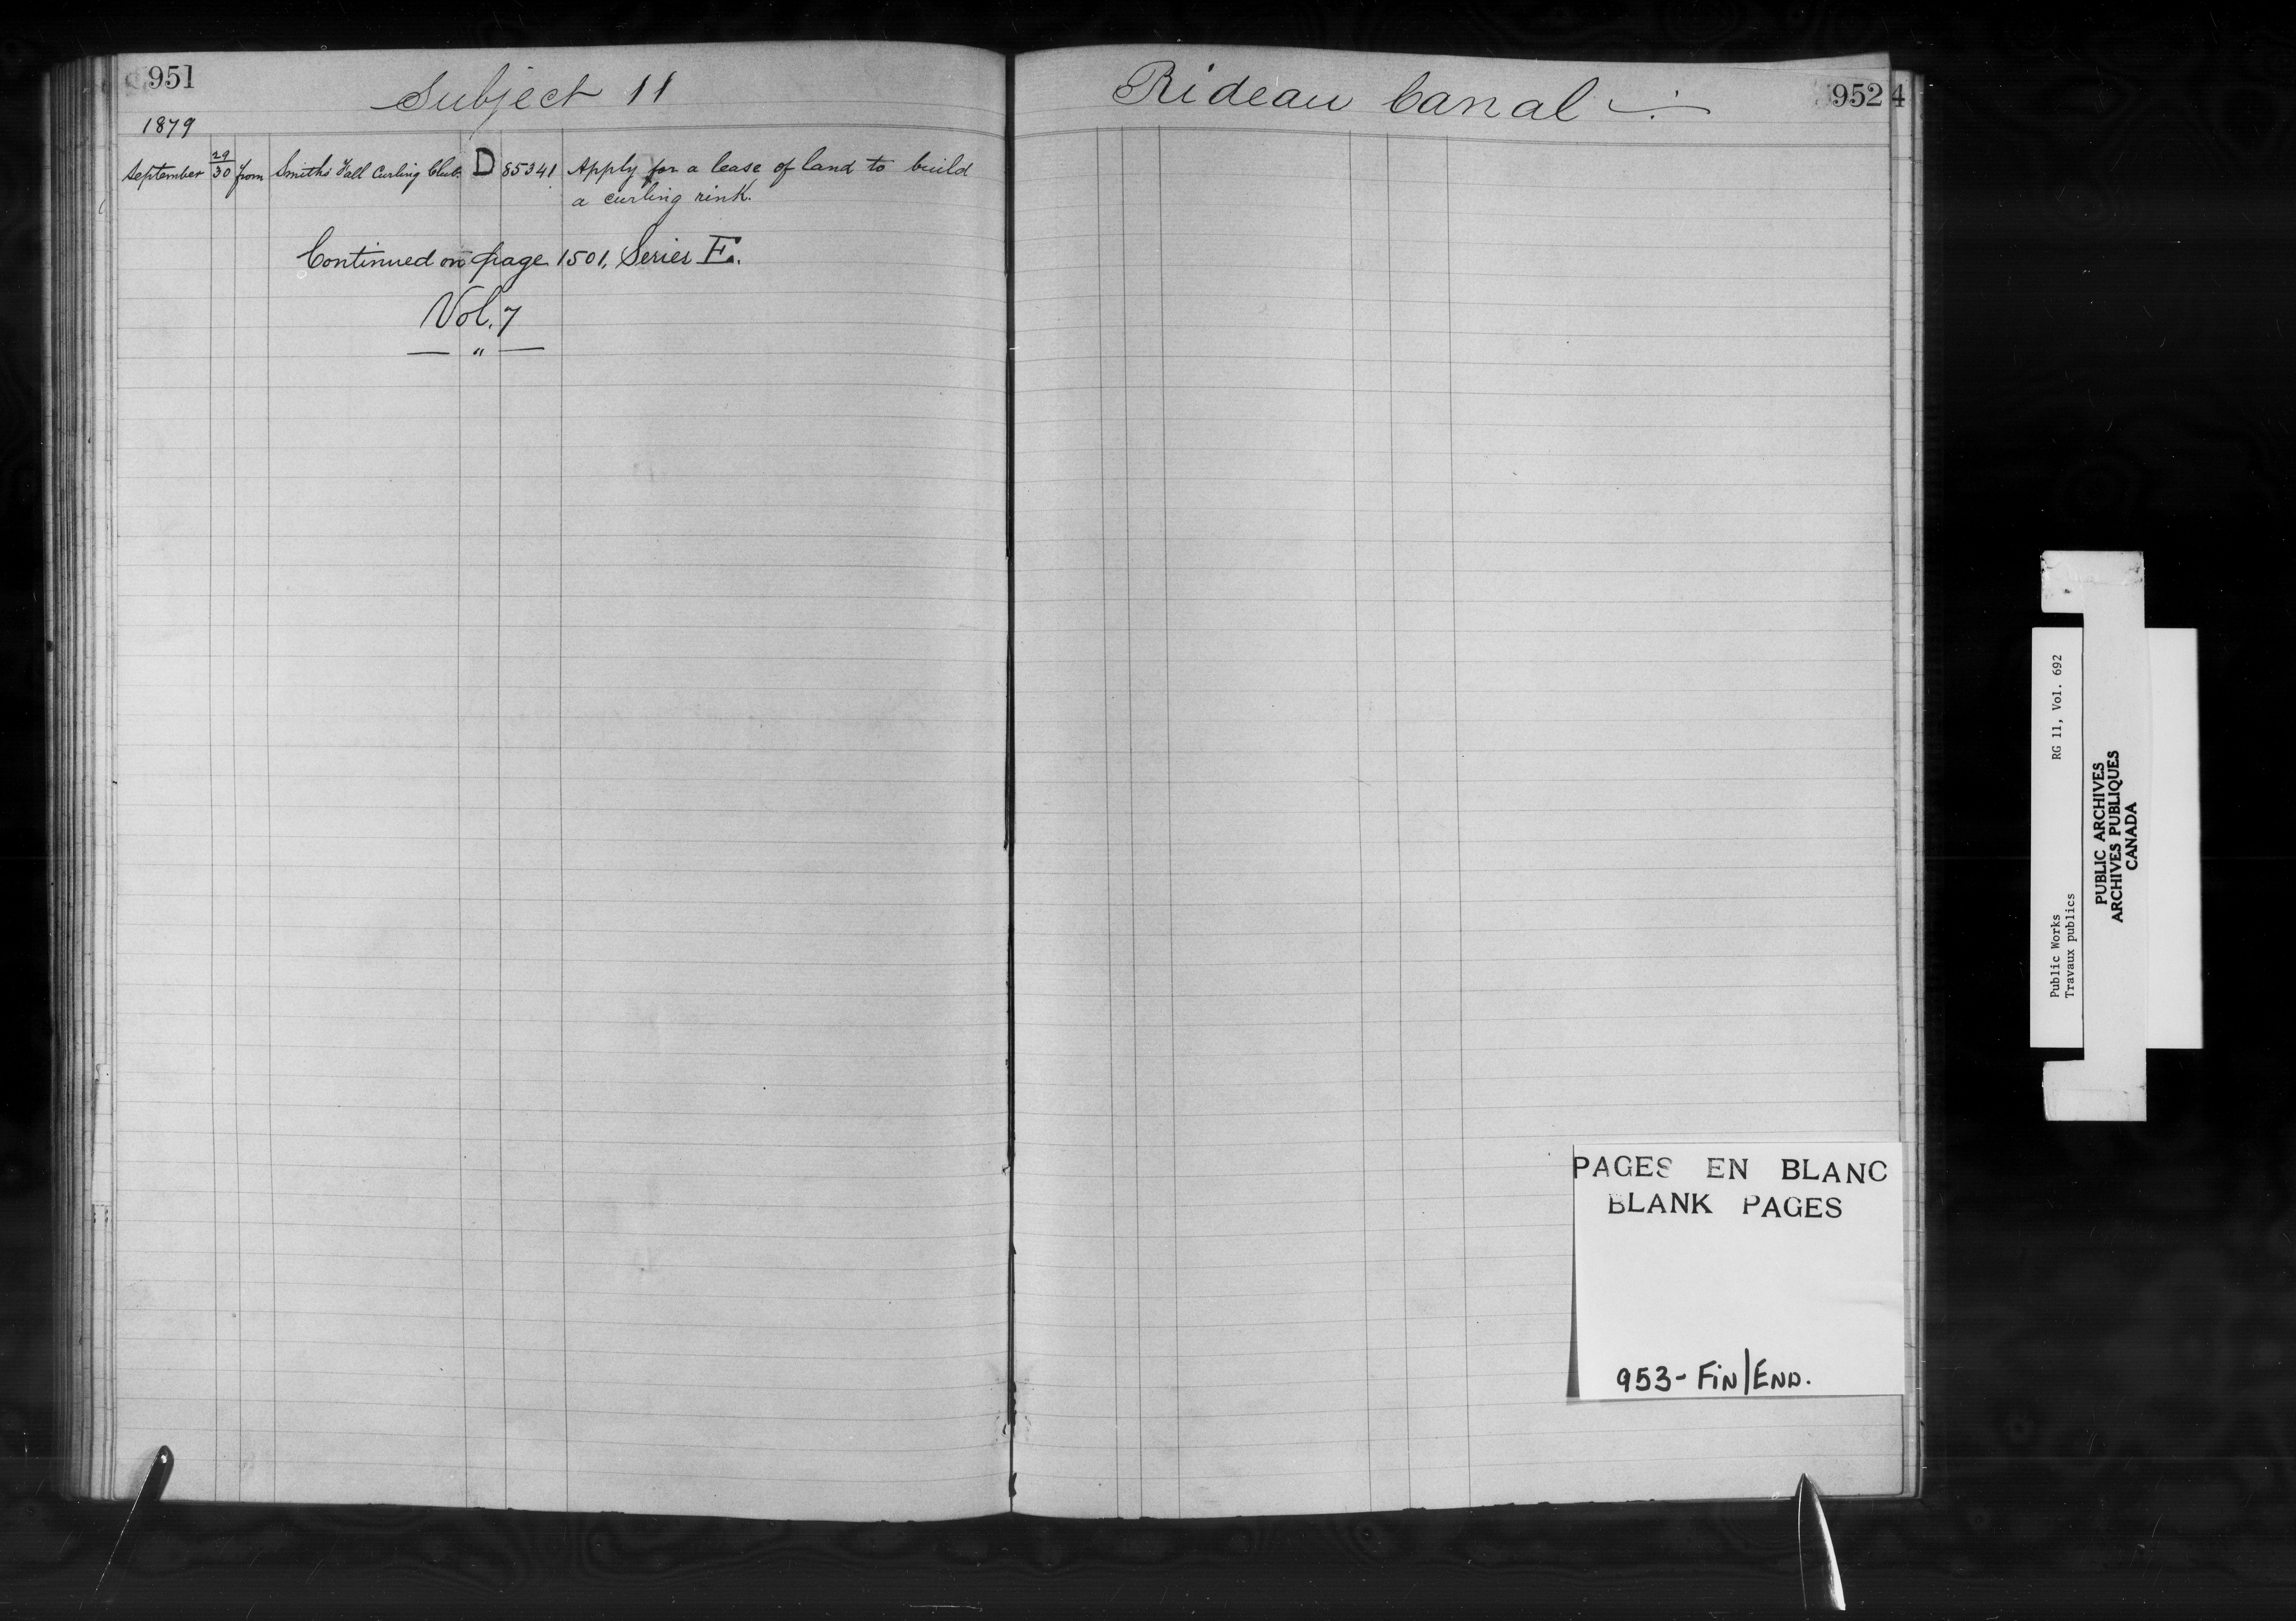 951
Subject 11
1879
September 29/30 from Smiths Fall Curling Club. D 85341 Apply for a lease of land to build
a curling rink.
Continued on page 1501, Series E.
Vol. 7
— " —
Rideau Canal
952 4
PAGES EN BLANC
BLANK PAGES
953- FiN/END.
Public Works RG 11, Vol. 692
Travaux publics
PUBLIC ARCHIVES
ARCHIVES PUBLIQUES
CANADA